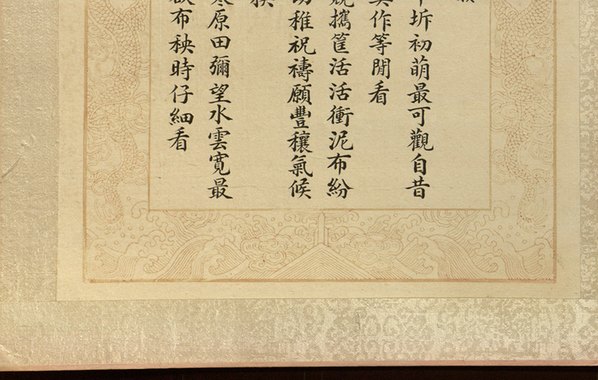 坼初萌最可觀自昔
作等閒看
攜筐活活衝泥布紛
稚祝禱願豐穰氣候
原田彌望水雲寬最
布秧時仔細看